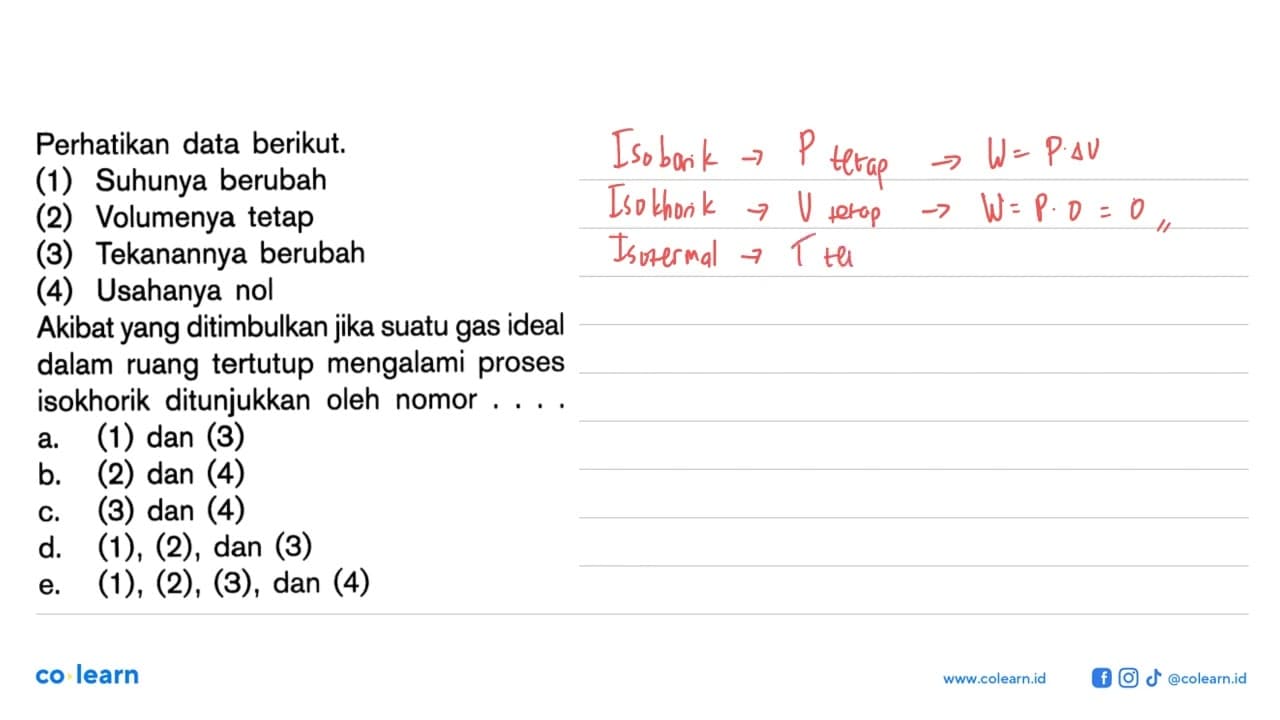 Perhatikan data berikut.
(1) Suhunya berubah
(2) Volumenya tetap
(3) Tekanannya berubah
(4) Usahanya nol
Akibat yang ditimbulkan jika suatu gas ideal
dalam ruang tertutup mengalami proses
isokhorik ditunjukkan oleh nomor . . . .
a. (1) dan (3)
b. (2) dan (4)
c. (3) dan (4)
d. (1), (2), dan (3)
e. (1), (2), (3), dan (4)
Isobarik → P tetap → W = P.ΔV
Isokhorik → V tetap → W = P. 0 = 0 //
Isotermal → T tet
co learn
www.colearn.id
@colearn.id